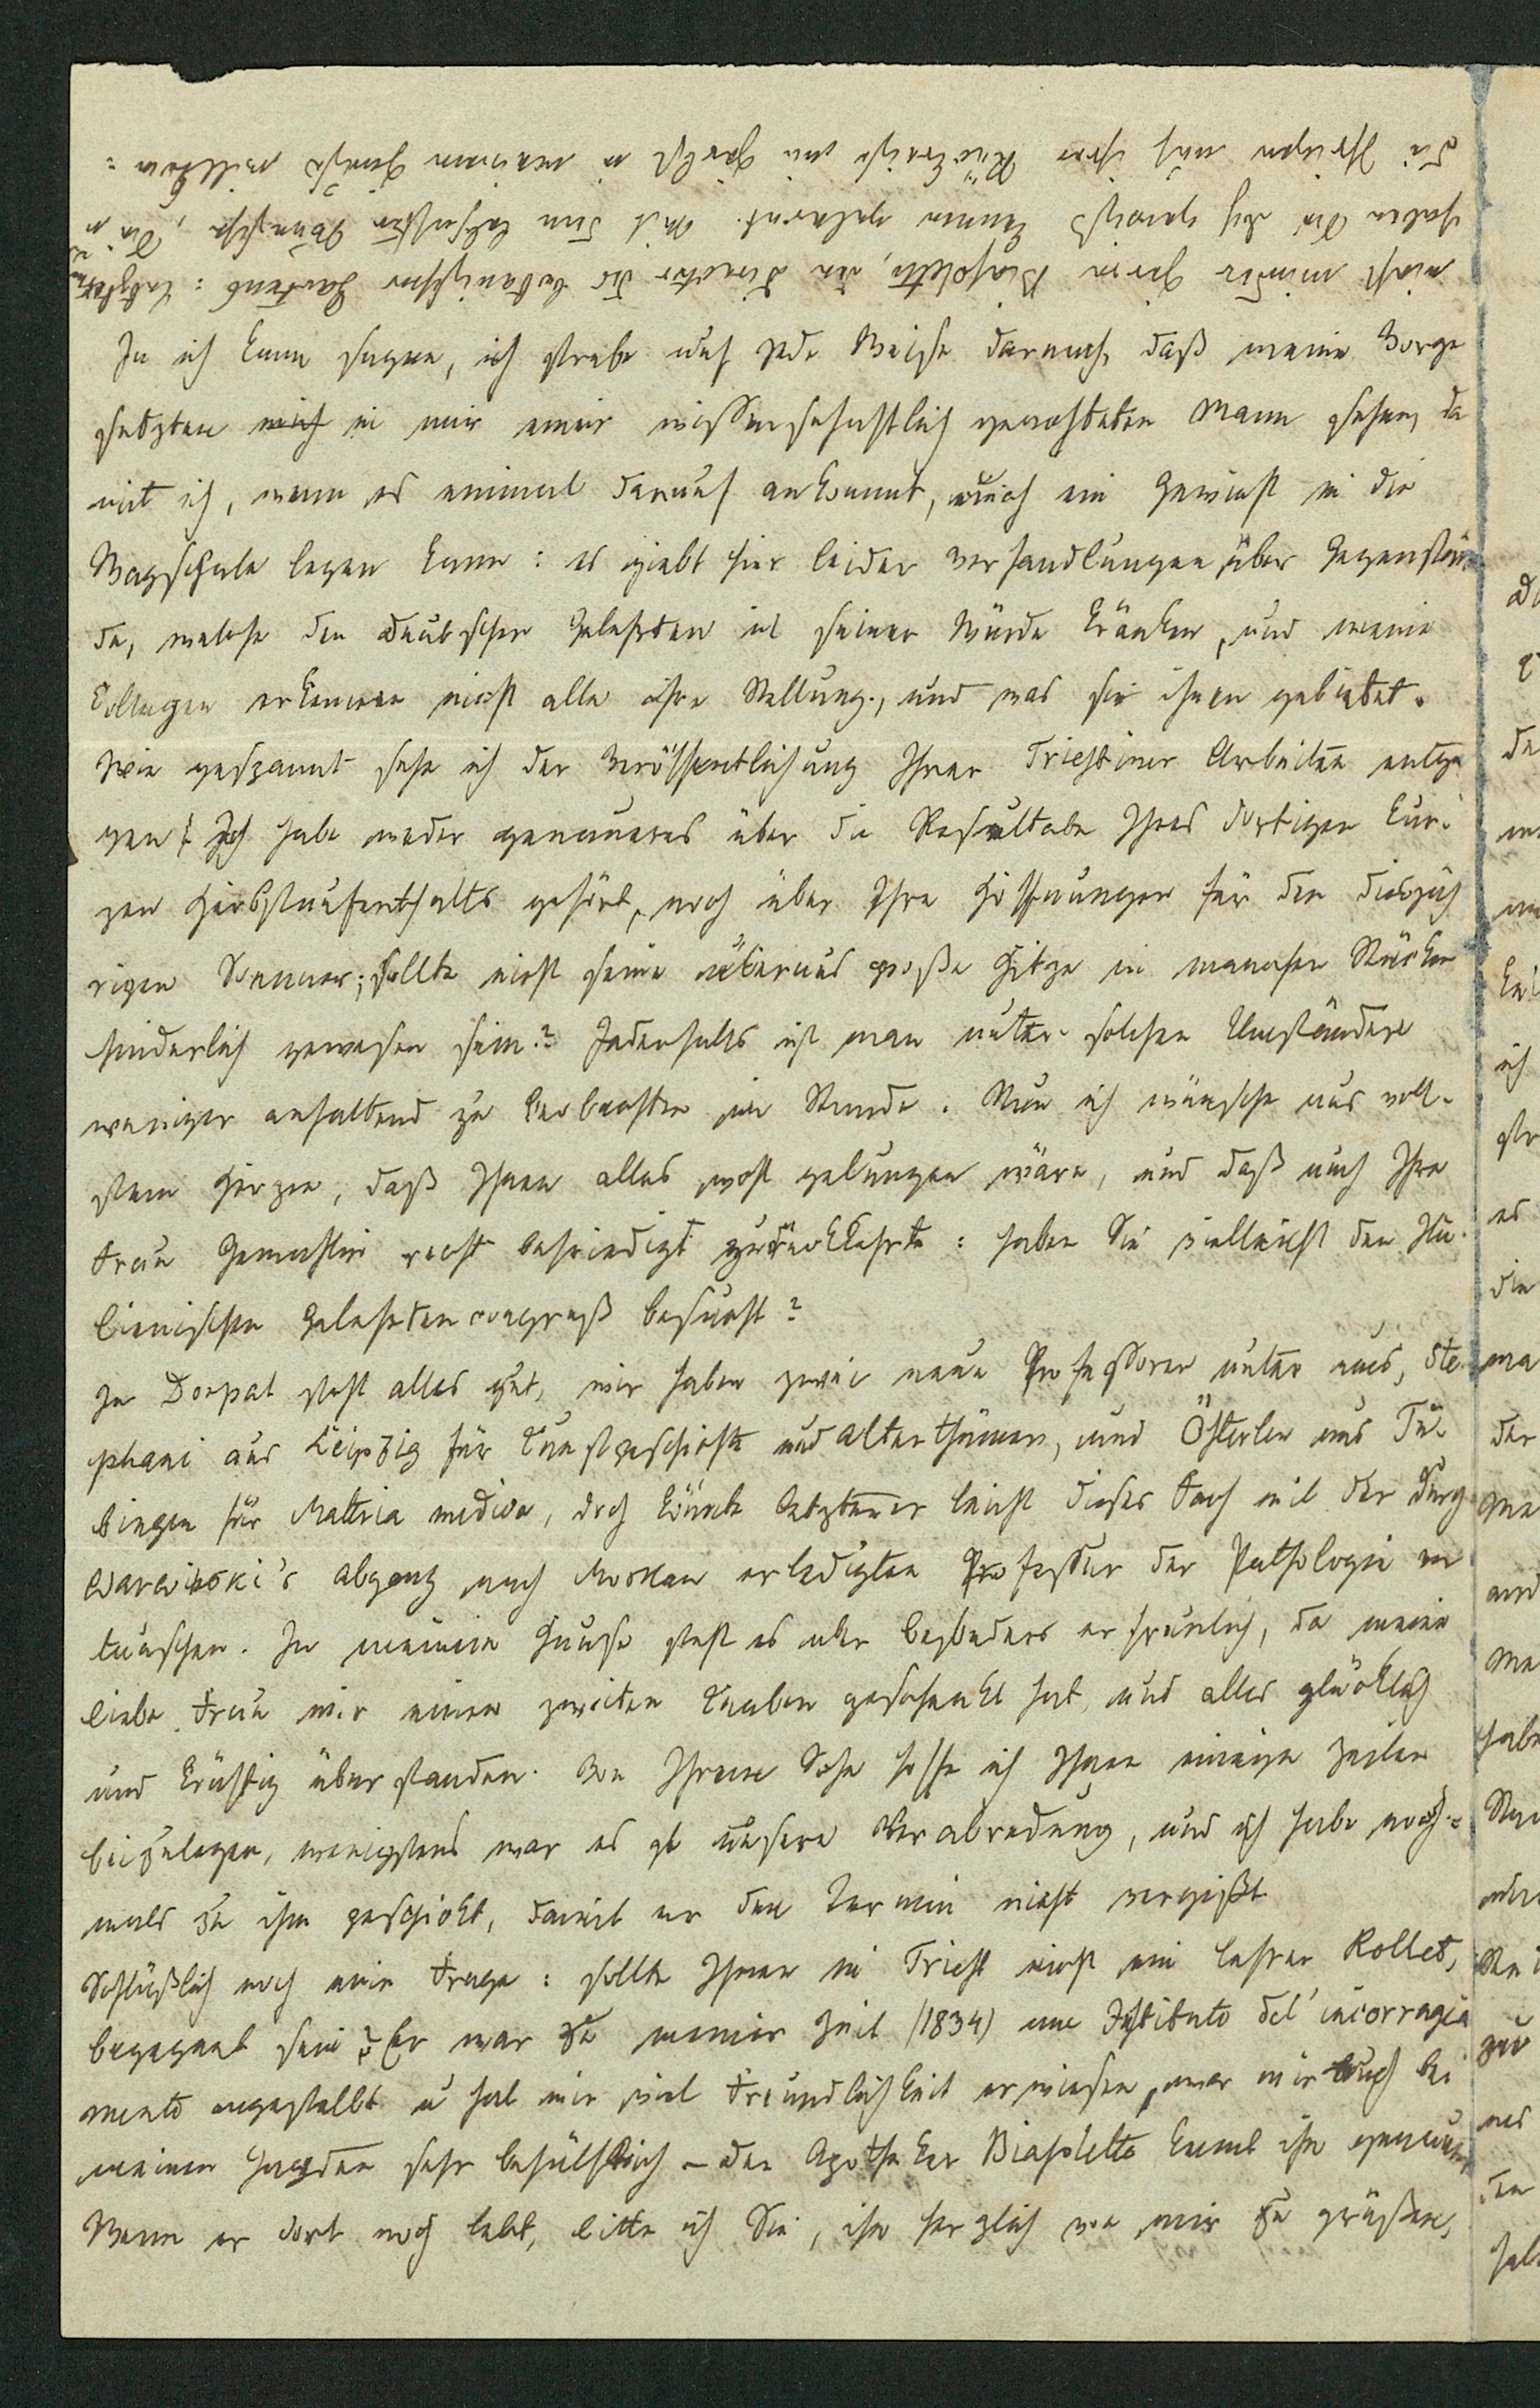 Ja ich kann sagen, ich strebe auf jede Weise darnach, daß meine Vorge
setzten in mir einen wissenschaftlich geachteten Mann sehen, da
mit ich, wenn es einmal darauf ankommt, auch ein Gewicht in die
Wagschale legen kann: es giebt hier leider Verhandlungen über Gegenstän
de, welche den deutschen Gelehrten in seiner Würde kränken, und meine
Collegen erkennen nicht alle ihre Stellung, und was sie ihnen gebietet.
Wie gespannt sehe ich der Veröffentlichung Ihrer Triestiner Arbeiten entge
gen! Ich habe weder genaueres über die Resultate Ihres dortigen kur-
zen Herbstaufenthalts gehört, noch über Ihre Hoffnungen für den diesjäh
rigen Sommer; sollte nicht seine überaus große Hitze in manchen Stücken
hinderlich gewesen sein? Jedenfalls ist man unter solchen Umständen
weniger anhaltend zu beobachten im Stande. Nun ich wünsche aus voll-
stem Herzen, daß Ihnen alles wohl gelungen wäre, und daß auch Ihre
Frau Gemahlin recht befriedigt zurückkehrte: haben Sie vielleicht den Ita-
lienischen Gelehrtencongreß besucht?
In Dorpat steht alles gut, wir haben zwei neue Professoren unter uns, Ste-
phani aus Leipzig für Kunstgeschichte und Alterthümer, und Österlen aus Tü-
bingen für Materia medica, doch könnte letzterer leicht dieses Fach mit der durch
Warwinski's Abgang nach Moskau erledigten Professur der Pathologie ver
tauschen. In meinem Hause steht es aber besonders erfreulich, da meine
liebe Frau mir einen zweiten Knaben geschenkt hat, und alles glücklich
und kräftig überstanden. Von Ihrem Sohn hoffe ich Ihnen einige Zeilen
beizulegen, wenigstens war es so unsere Verabredung, und ich habe noch-
mals zu ihm geschickt, damit er den Termin nicht vergißt
Schlüßlich noch eine Frage: sollte Ihnen in Triest nicht ein Lehrer Kollet,
begegnet sein? Er war zu meiner Zeit (1834) am Istituto del' incorragia
mento angestellt u hat mir viel Freundlichkeit erwiesen, war mir auch bei
meinen Jagden sehr behülflich – der Apotheker Biasoletto kennt ihn genau
Wenn er dort noch lebt, bitte ich Sie, ihn herzlich von mir zu grüßen,
nicht minder Herrn Biasoletto, den Director des botanischen Gartens: letzteren
haben Sie doch gewiß kennen gelernt. Mit dem lebhaften Wunsche, Sie
die Ihrigen auf ihrer Rückreise von Herbst in meinem Hause